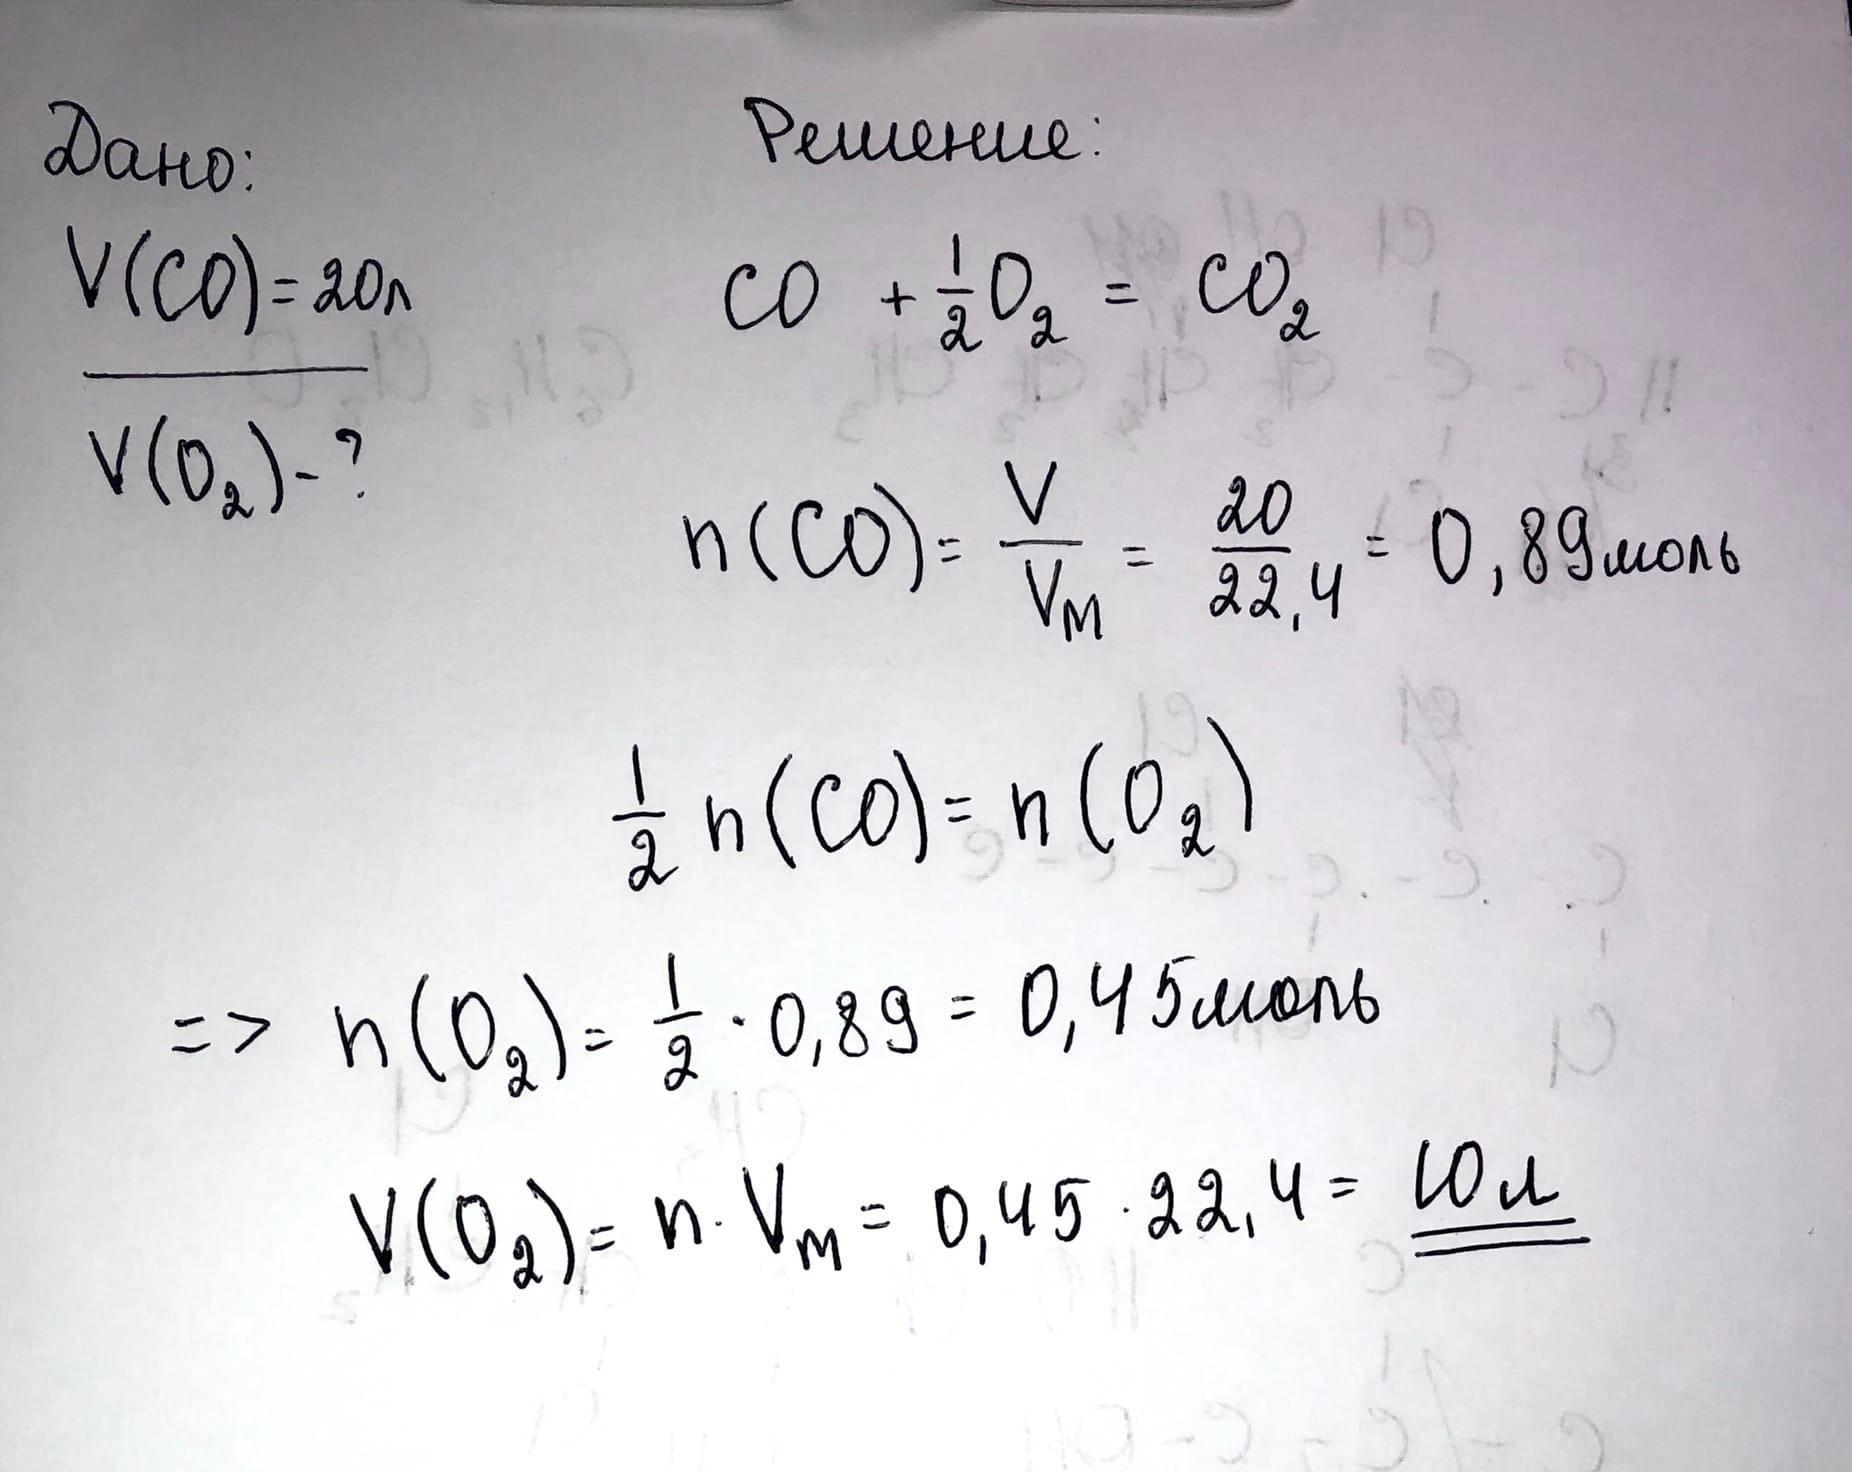 Дано:
V(CO)=20л
V(O₂)-?
Решение:
CO + 1/2 O₂ = CO₂
n(CO) = V/Vм = 20/22,4 = 0,89моль
1/2 n(CO) = n(O₂)
=> n(O₂) = 1/2 · 0,89 = 0,45моль
V(O₂) = n · Vm = 0,45 · 22,4 = 10л